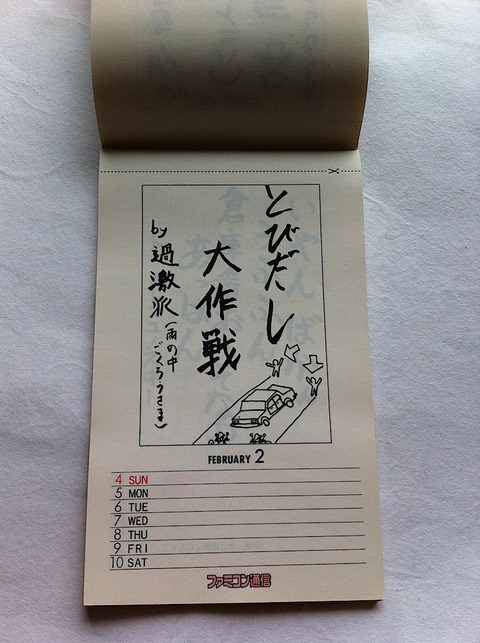 とびだし
大作戦
by 過激派
(雨の中
ごくろうさま)
FEBRUARY 2
4 SUN
5 MON
6 TUE
7 WED
8 THU
9 FRI
10 SAT
ファミコン通信